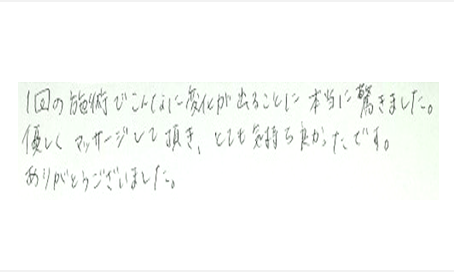 1回の施術でこんなに変化が出ることに本当に驚きました。
優しくマッサージして頂き、とても気持ち良かったです。
ありがとうございました。